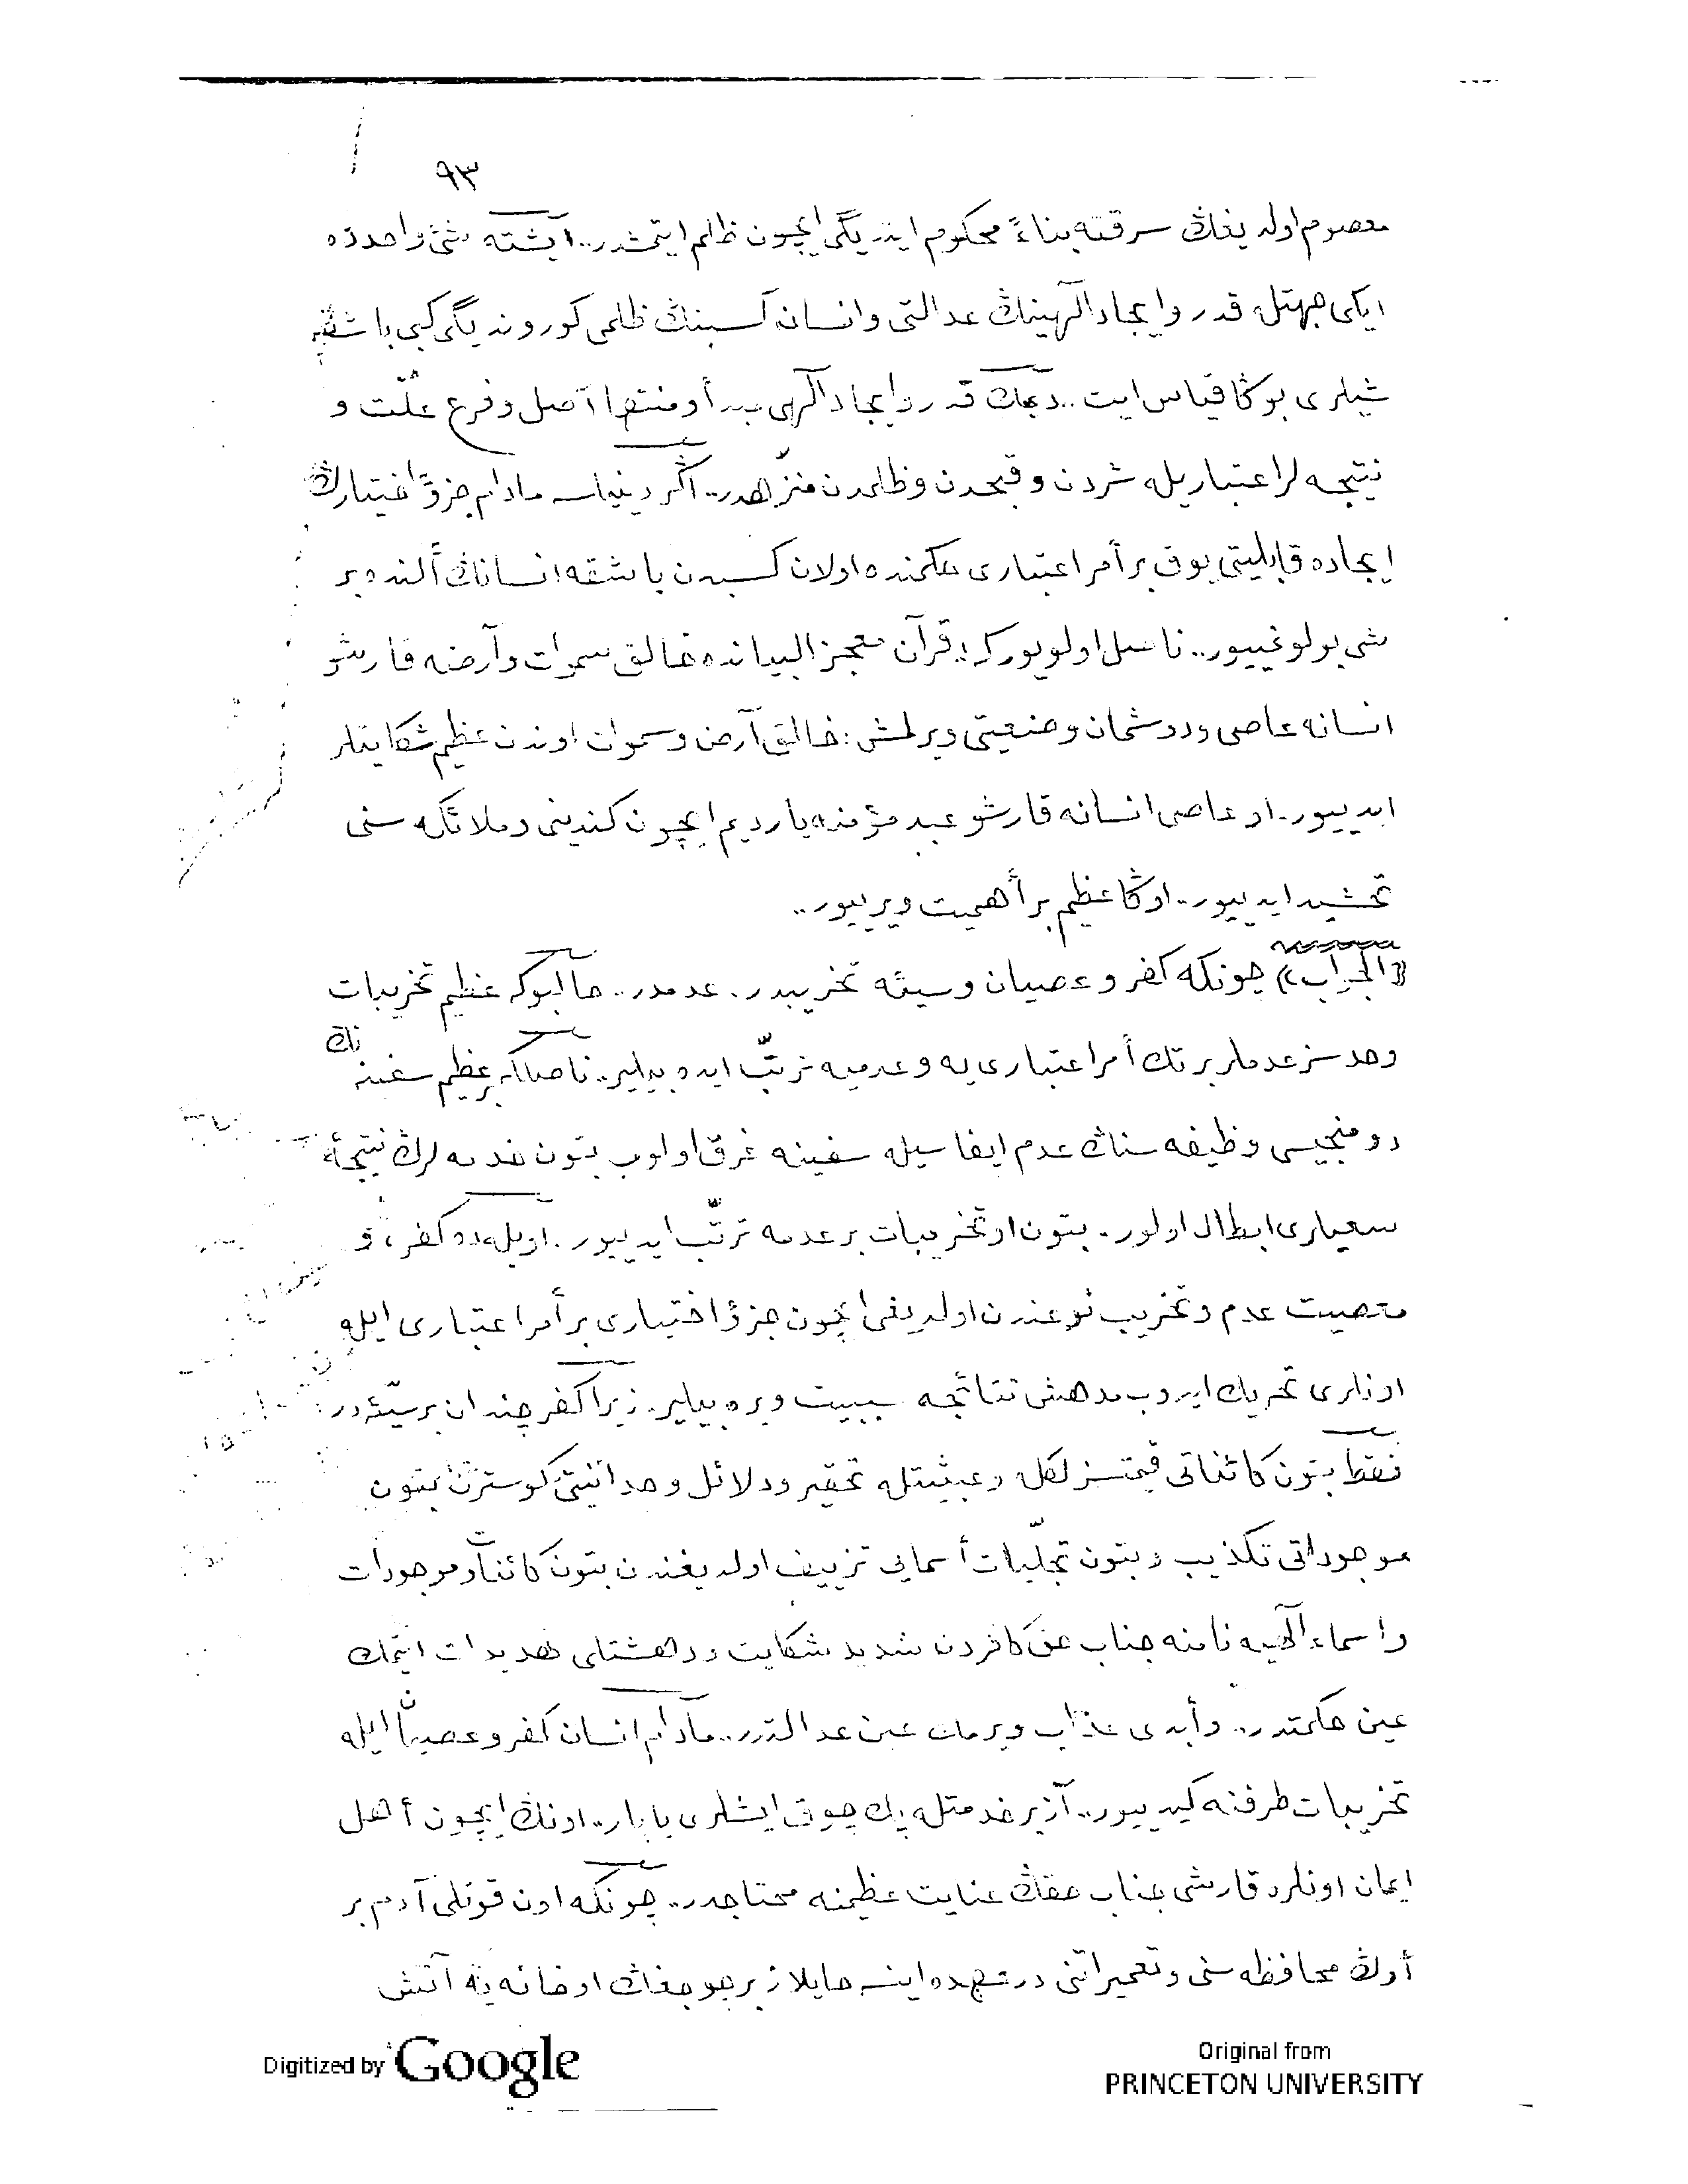 ٩٣
معصوم اولديغڭ سرقته بناءً محكوم ايتديگى ايچون ظلم ايتمشدر.. ايشته شئ واحدده
ايكى جهتله قدر وايجاد الٓهينڭ عدالتى وانسان كسبنڭ ظلمى كوروندیگى كبى باشقه
شيلرى بوڭا قياس ايت.. ديمك قدر وايجاد الٓهى مبدأ ومنتها أصل وفرع علّت و
نتيجه لر اعتباريله شردن وقبحدن وظلمدن منزّهدر.. اگر دينيلسه مادام جزؤ اختيارڭ
ايجاده قابليتى يوق بر أمر اعتبارى حكمنده اولان كسبدن باشقه انسانڭ ألنده بر
شى بولونمييور.. ناصل اولويوركه: قرآن معجز البيانده خالق سموات وأرضه قارشو
انسانه عاصى ودوشمان وضعيتى ويرلمش: خالق أرض وسموات اوندن عظيم شكايتلر
ايدييور. او عاصى انسانه قارشو عبد مؤمنه يارديم ايچون كندينى وملائكه سنى
تحشيد ايدييور.. اوڭا عظيم بر أهميت ويرييور..
«الجواب» چونكه كفر وعصيان وسيئه تخريبدر. عدمدر.. حالبوكه عظيم تخريبات
وحدسز عدملر بر تك أمر اعتبارى يه وعدميه ترتّب ايده بيلير.. ناصلكه بر عظيم سفينه نڭ
دومنجيسى وظيفه سنڭ عدم ايفاسيله سفينه غرق اولوب بتون خدمه لرڭ نتيجۀ
سعيلرى ابطال اولور. بتون او تخريبات بر عدمه ترتّب ايدييور. اويله ده كفر، و
معصيت عدم وتخريب نوعندن اولديغى ايچون جزؤ اختيارى بر أمر اعتبارى ايله
اونلرى تحريك ايدوب مدهش نتائجه سببيت ويره بيلير. زيرا كفر چندان بر سيّئه در:
فقط بتون كائناتى قيمتسزلكله وعبثيتله تحقير ودلائل وحدانيتى كوسترن بتون
موجوداتى تكذيب وبتون تجلّيات أسمايى تزييف اولديغندن بتون كائنات وموجودات
واسماء الٓهيه نامنه جناب حق كافردن شديد شكايت ودهشتلى تهديدات ايتمك
عين حكمتدر.. وأبدى عذاب ويرمك عين عدالتدر.. مادام انسان كفر وعصيان ايله
تخريبات طرفنه كيدييور.. آز بر خدمتله پك چوق ايشلرى ياپار.. اونڭ ايچون أهل
ايمان اونلره قارشى جناب حقڭ عنايت عظيمنه محتاجدر.. چونكه اون قوتلى آدم بر
أوڭ محافظه سنى وتعميراتنى درعهده ايتسه حايلاز بر چوجغڭ او خانه يه آتش
Digitized by Google
Original from
PRINCETON UNIVERSITY